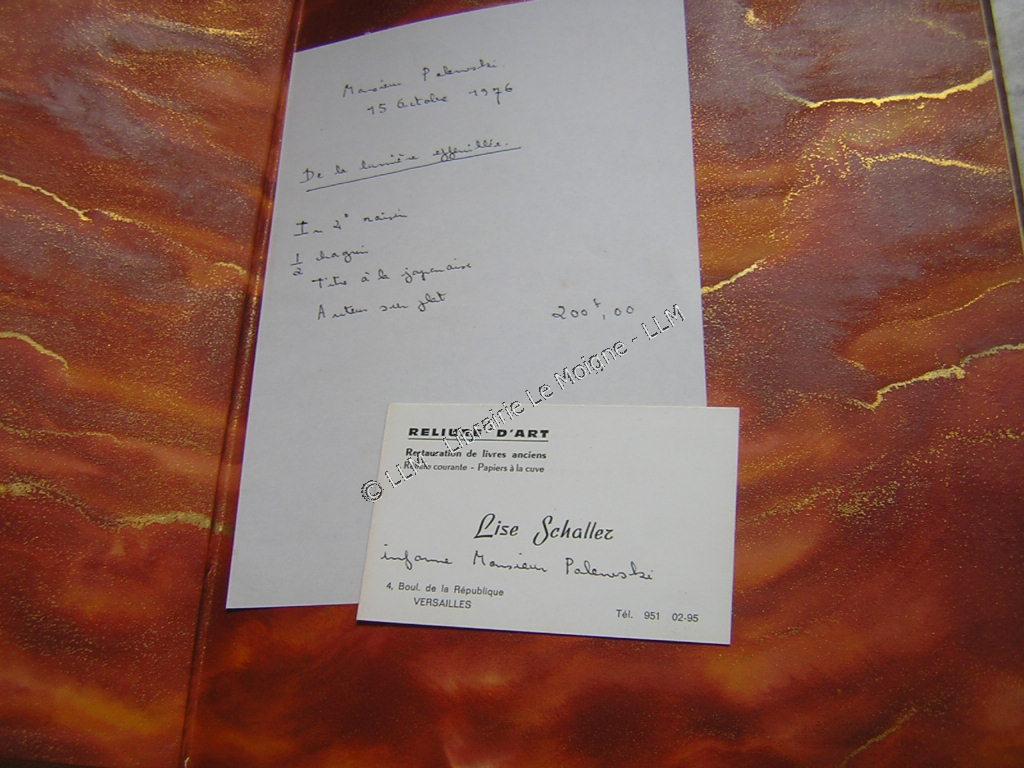 Monsieur Palewski.
15 Octobre 1976
De la lumière effeuillée.
In 2° raisin
1/2 chagrin
Titre à la japonaise
Auteur sur plat
200f,00
© LLM - Librairie Le Moigne - LLM
RELIURE D'ART
Restauration de livres anciens
Reliure courante - Papiers à la cuve
Lise Schaller
informe Monsieur Palewski
4, Boul. de la République
VERSAILLES
Tél. 951 02-95